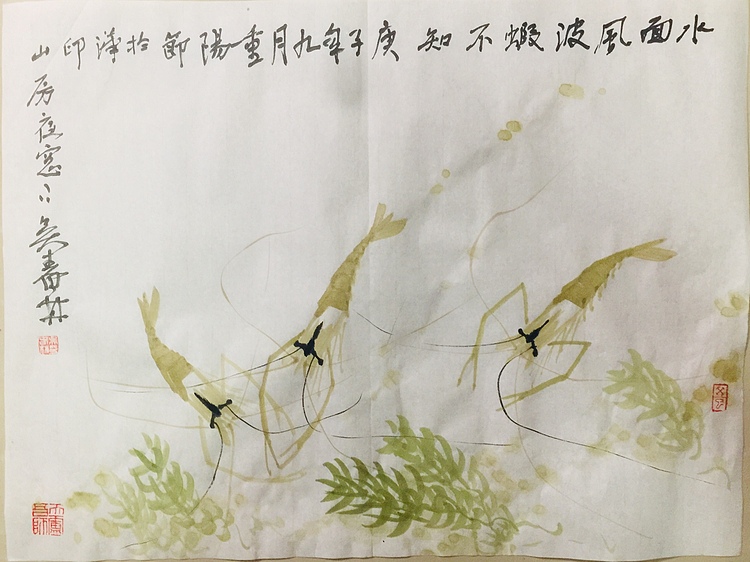 水面風波蝦不知 庚子年九月重陽節於漳印山
房夜窓下吳